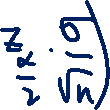 z_{\frac{\alpha}{2}} \cdot \frac{\sigma}{\sqrt{n}})